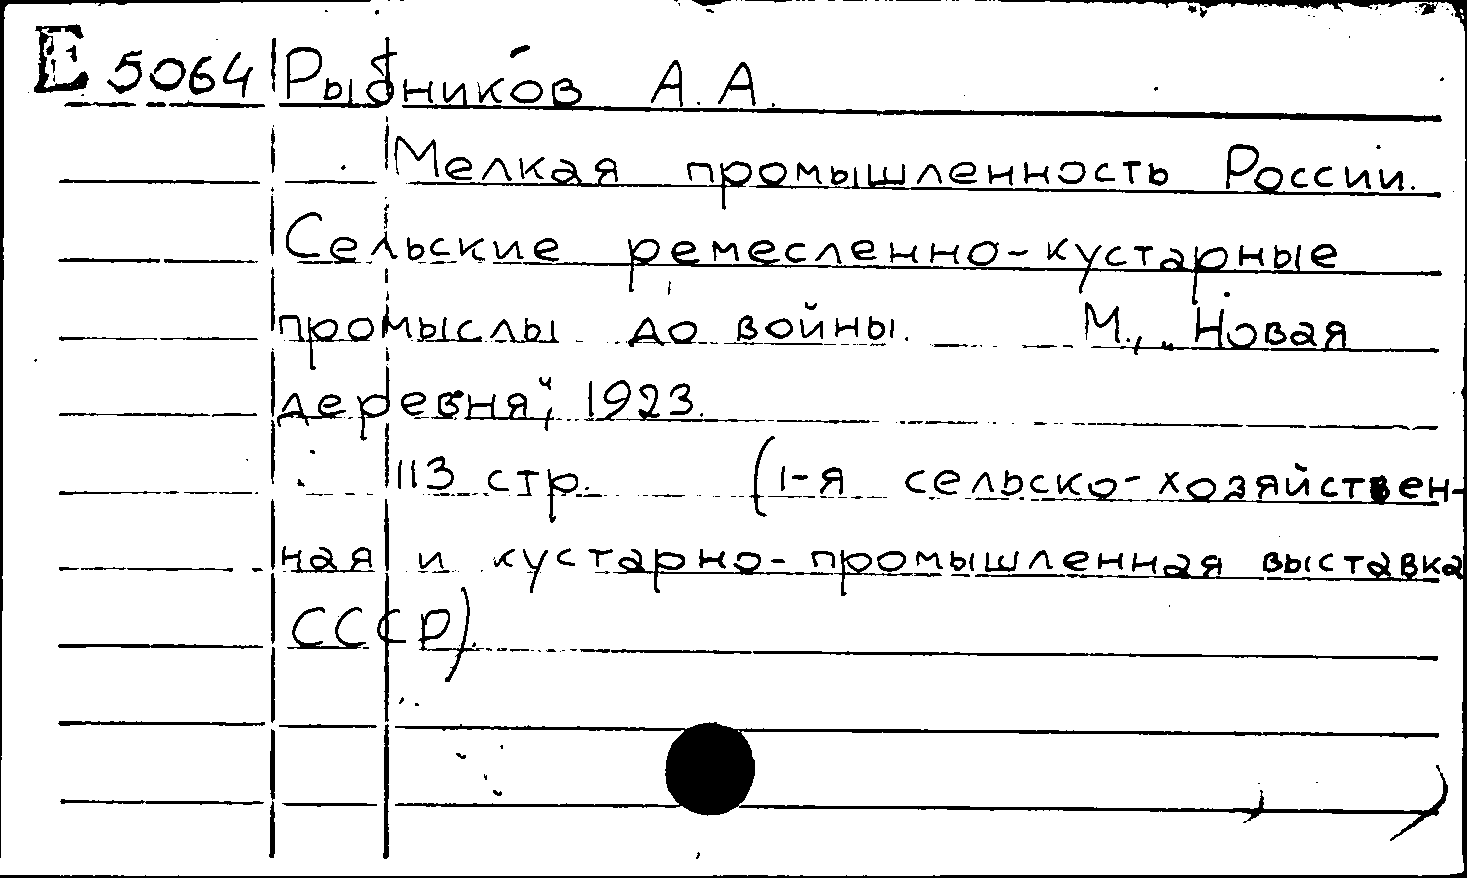 E 5064 Рыбников А. А.
Мелкая промышленность России.
Сельские ремесленно-кустарные
промыслы до войны. М., „Новая
деревня“, 1923.
113 стр. (1-я сельско-хозяйствен-
ная и кустарно-промышленная выставка
СССР).